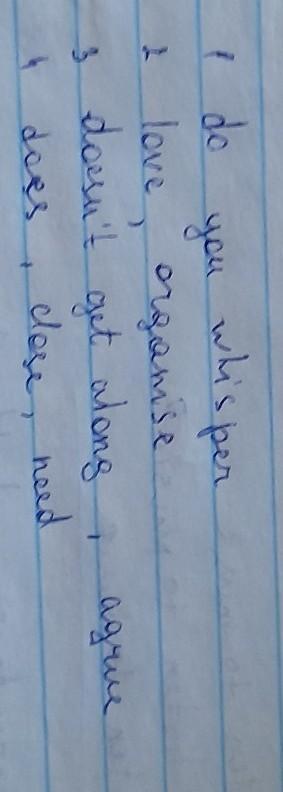 1 do you whisper
2 love, organise
3 doesn't get along, agree
4 does, close, need